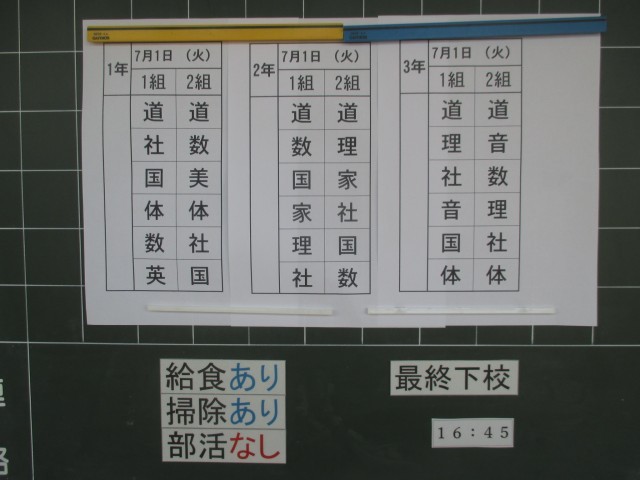 1年 7月1日 (火)
1組 2組
道 道
社 数
国 美
体 体
数 社
英 国
2年 7月1日 (火)
1組 2組
道 道
数 理
国 家
家 社
理 国
社 数
3年 7月1日 (火)
1組 2組
道 道
理 音
社 数
音 理
国 社
体 体
給食あり
掃除あり
部活なし
最終下校
16:45